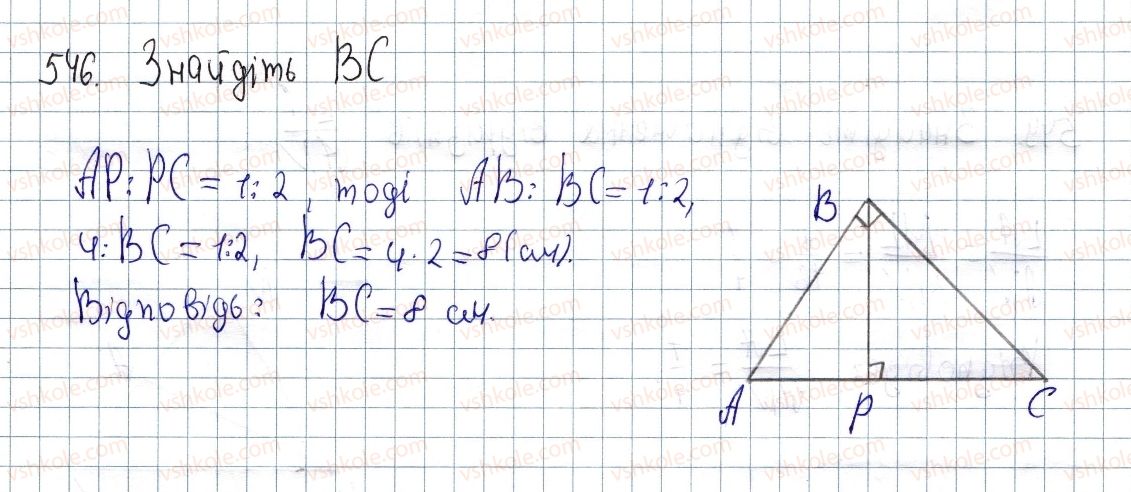 546. Знайдіть BC
AP:PC=1:2, тоді AB:BC=1:2,
4:BC=1:2, BC=4·2=8(см).
Відповідь: BC=8 см.
B
A P C